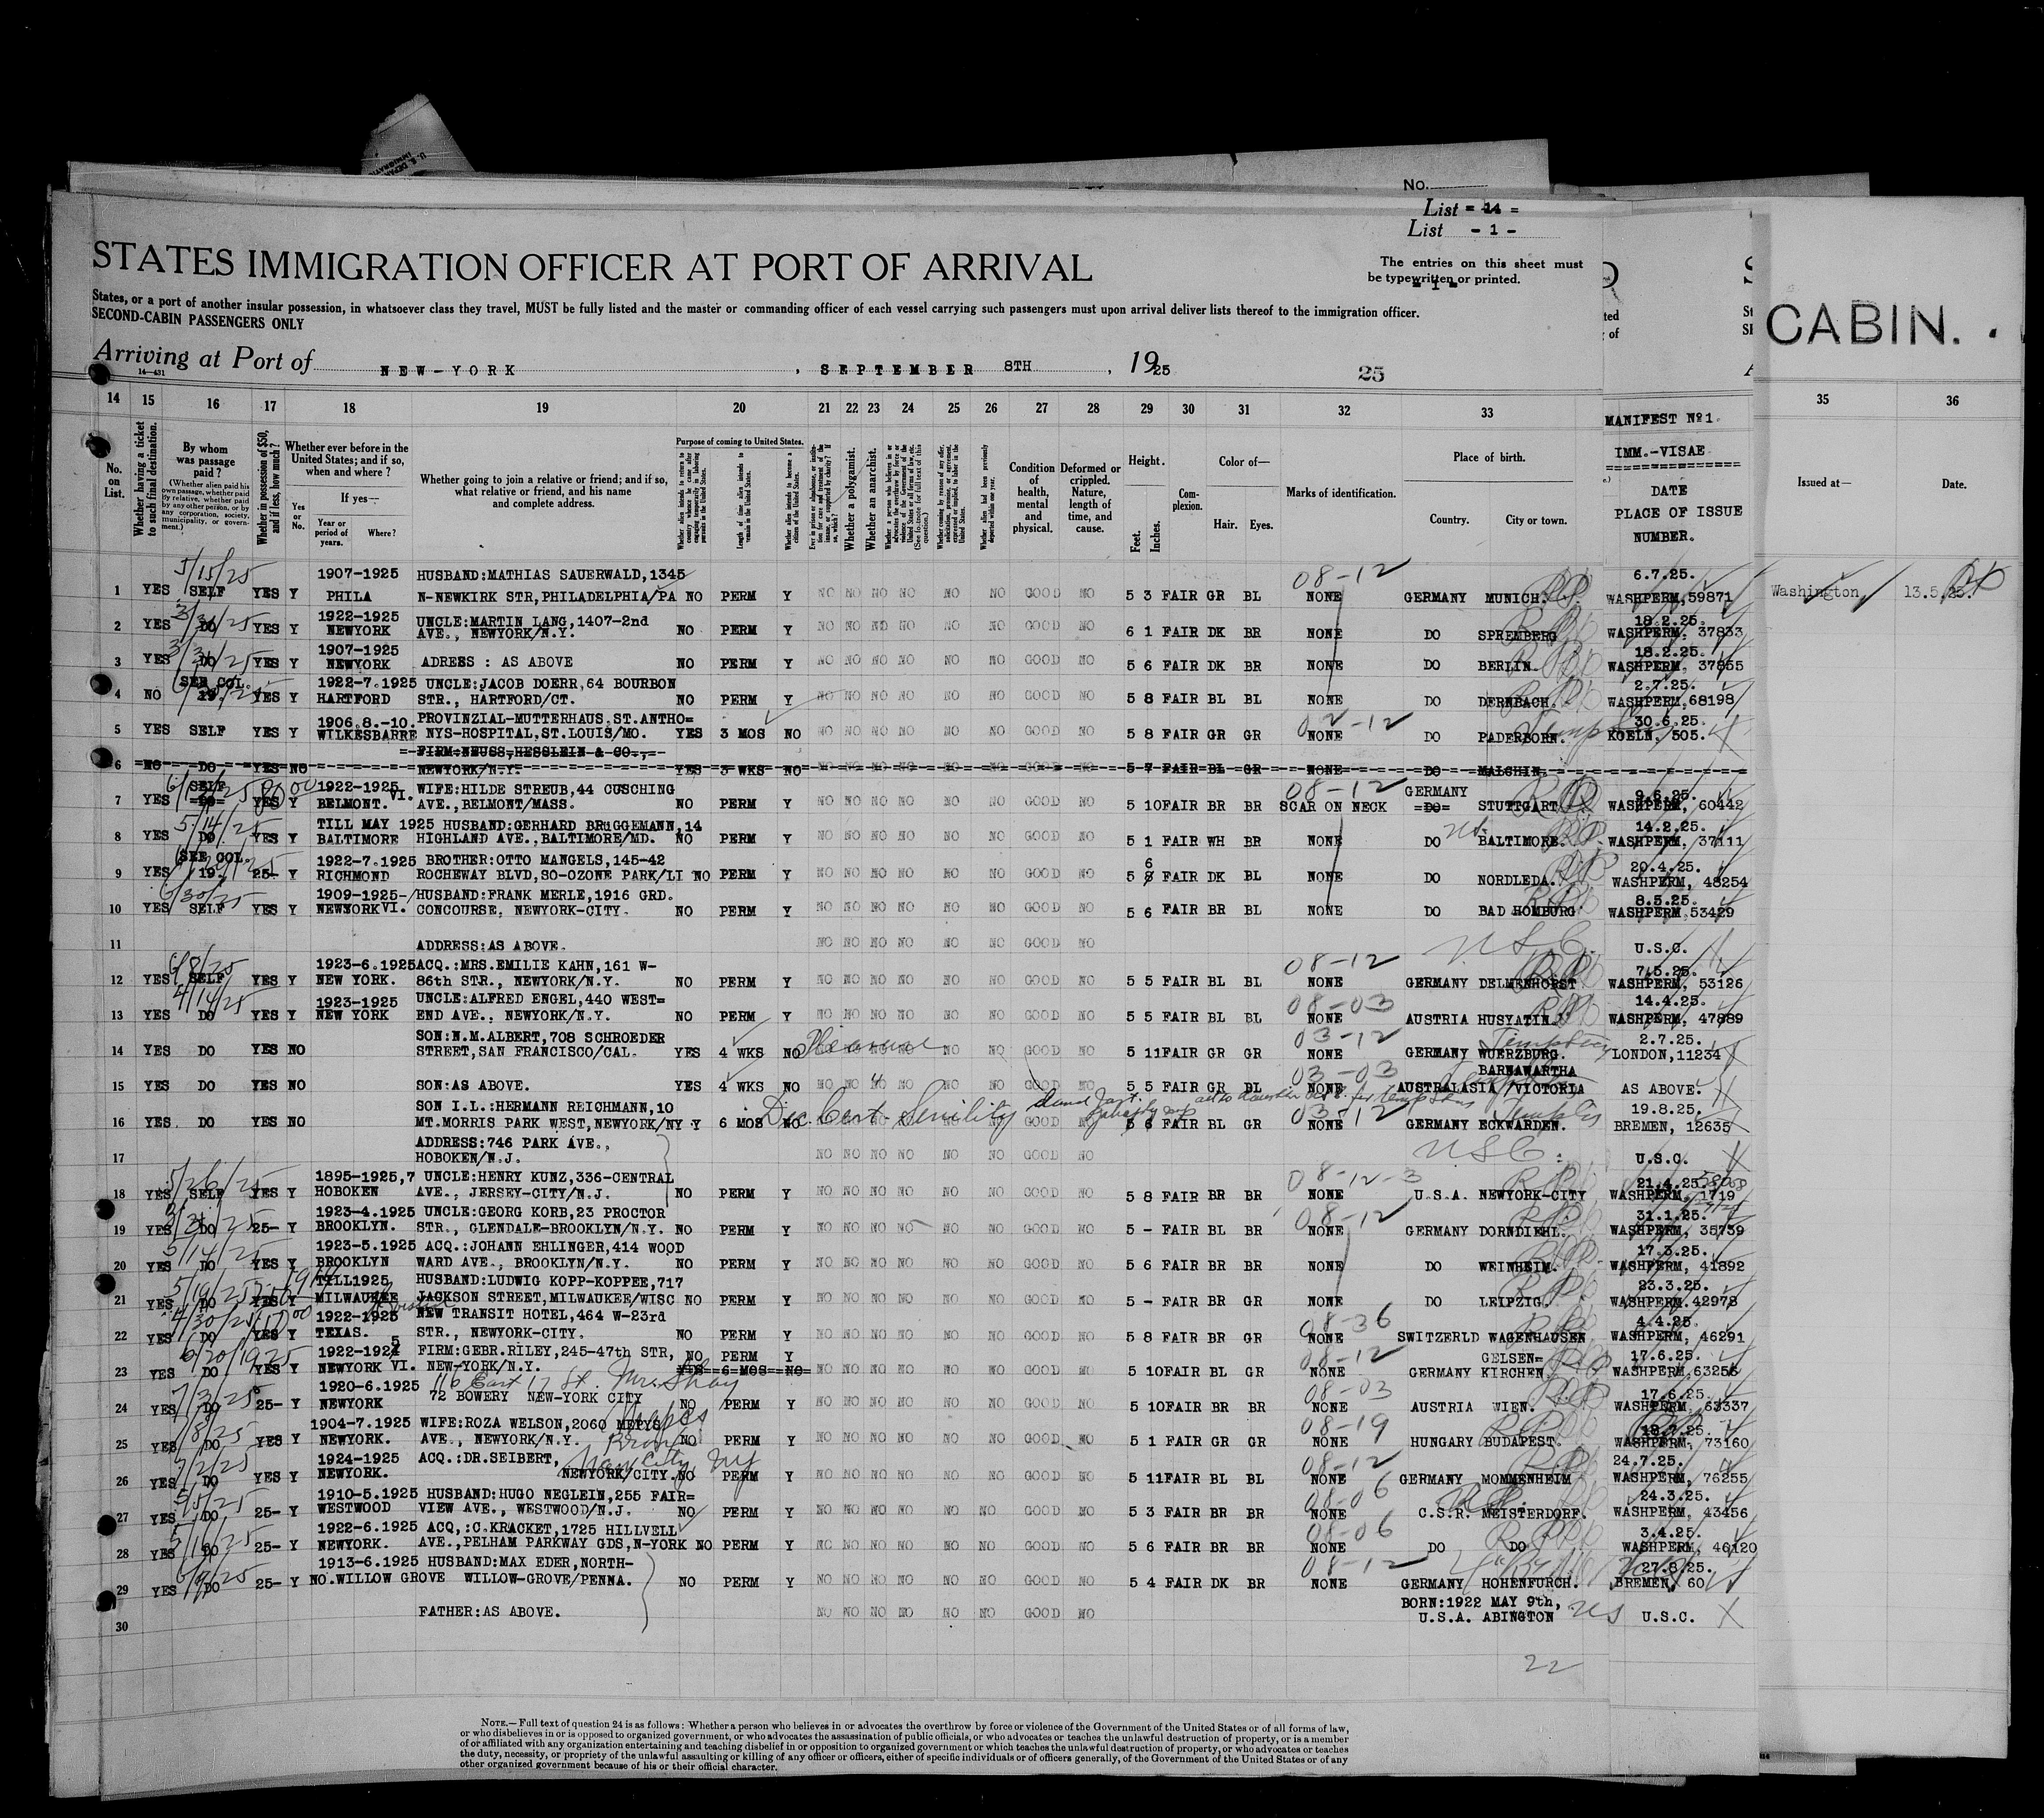 No.
List = 14 =
List - 1 -
STATES IMMIGRATION OFFICER AT PORT OF ARRIVAL
The entries on this sheet must
be typewritten or printed.
- 1 -
States, or a port of another insular possession, in whatsoever class they travel, MUST be fully listed and the master or commanding officer of each vessel carrying such passengers must upon arrival deliver lists thereof to the immigration officer.
SECOND-CABIN PASSENGERS ONLY
CABIN.
Arriving at Port of NEW-YORK, SEPTEMBER 8TH, 1925 25
14—431
14 15 16 17 18 19 20 21 22 23 24 25 26 27 28 29 30 31 32 33 35 36
No. on List.
Whether having a ticket to such final destination.
By whom was passage paid?
(Whether alien paid his own passage, whether paid by relative, whether paid by any other person, or by any corporation, society, municipality, or government.)
Whether in possession of $50, and if less, how much?
Whether ever before in the United States; and if so, when and where?
Yes or No.
If yes—
Year or period of years.
Where?
Whether going to join a relative or friend; and if so, what relative or friend, and his name and complete address.
Purpose of coming to United States.
Whether alien intends to return to country whence he came after engaging temporarily in laboring pursuits in the United States.
Length of time alien intends to remain in the United States.
Whether alien intends to become a citizen of the United States.
Whether a polygamist.
Whether an anarchist.
Whether alien had been previously deported within one year.
Condition of health, mental and physical.
Deformed or crippled. Nature, length of time, and cause.
Height.
Feet. Inches.
Complexion.
Color of—
Hair. Eyes.
Marks of identification.
Place of birth.
Country. City or town.
MANIFEST No 1.
IMM.-VISAE
DATE
PLACE OF ISSUE
NUMBER.
Issued at—
Date.
5/15/25 1907-1925 HUSBAND:MATHIAS SAUERWALD,1345 08-12 6.7.25.
1 YES SELF YES Y PHILA N-NEWKIRK STR,PHILADELPHIA/PA NO PERM Y NO NO NO NO NO NO GOOD NO 5 3 FAIR GR BL NONE GERMANY MUNICH. WASHPERM,59871 Washington, 13.5.25.
1922-1925 UNCLE:MARTIN LANG,1407-2nd 18.2.25.
2 YES DO YES Y NEWYORK AVE., NEWYORK/N.Y. NO PERM Y NO NO NO NO NO NO GOOD NO 6 1 FAIR DK BR NONE DO SPREMBERG WASHPERM, 37833
1907-1925 18.2.25.
3 YES DO YES Y NEWYORK ADRESS : AS ABOVE NO PERM Y NO NO NO NO NO NO GOOD NO 5 6 FAIR DK BR NONE DO BERLIN. WASHPERM, 37855
SEE COL. 1922-7.1925 UNCLE:JACOB DOERR,64 BOURBON 2.7.25.
4 NO 19. YES Y HARTFORD STR., HARTFORD/CT. NO PERM Y NO NO NO NO NO NO GOOD NO 5 8 FAIR BL BL NONE DO DERNBACH. WASHPERM,68198
1906.8.-10. PROVINZIAL-MUTTERHAUS,ST.ANTHO= 02-12 30.6.25.
5 YES SELF YES Y WILKESBARRE NYS-HOSPITAL,ST.LOUIS/MO. YES 3 MOS NO NO NO NO NO NO NO GOOD NO 5 8 FAIR GR GR NONE DO PADERBORN. KOELN, 505.
FIRM:NEUSS,HESSLEIN & CO.,
6 NO DO YES NO NEWYORK/N.Y. YES 3 WKS NO 5 7 FAIR BL GR NONE DO MALCHIN.
SELF 1922-1925 WIFE:HILDE STREUB,44 CUSCHING 08-12 GERMANY 9.6.25.
7 YES =DO= YES Y BELMONT. VI. AVE.,BELMONT/MASS. NO PERM Y NO NO NO NO NO NO GOOD NO 5 10 FAIR BR BR SCAR ON NECK =DO= STUTTGART WASHPERM, 60442
5/14/25 TILL MAY 1925 HUSBAND:GERHARD BRuGGEMANN,14 14.2.25.
8 YES DO YES Y BALTIMORE HIGHLAND AVE.,BALTIMORE/MD. NO PERM Y NO NO NO NO NO NO GOOD NO 5 1 FAIR WH BR NONE DO BALTIMORE. WASHPERM, 37111
SEE COL. 1922-7.1925 BROTHER:OTTO MANGELS,145-42 6 20.4.25.
9 YES 19. 25- Y RICHMOND ROCHEWAY BLVD,SO-OZONE PARK/LI NO PERM Y NO NO NO NO NO NO GOOD NO 5 8 FAIR DK BL NONE DO NORDLEDA. WASHPERM, 48254
6/30/25 1909-1925- HUSBAND:FRANK MERLE,1916 GRD. 8.5.25.
10 YES SELF YES Y NEWYORK VI. CONCOURSE, NEWYORK-CITY. NO PERM Y NO NO NO NO NO NO GOOD NO 5 6 FAIR BR BL NONE DO BAD HOMBURG WASHPERM 53429
11 ADDRESS:AS ABOVE. NO NO NO NO NO NO GOOD NO USC. U.S.C.
6/8/25 1923-6.1925 ACQ.:MRS.EMILIE KAHN,161 W- 08-12 7.5.25.
12 YES SELF YES Y NEW YORK. 86th STR., NEWYORK/N.Y. NO PERM Y NO NO NO NO NO NO GOOD NO 5 5 FAIR BL BL NONE GERMANY DELMENHORST WASHPERM, 53126
4/14/25 1923-1925 UNCLE:ALFRED ENGEL,440 WEST= 08-03 14.4.25.
13 YES DO YES Y NEW YORK END AVE., NEWYORK/N.Y. NO PERM Y NO NO NO NO NO NO GOOD NO 5 5 FAIR BL BL NONE AUSTRIA HUSYATIN. WASHPERM, 47889
SON:N.M.ALBERT,708 SCHROEDER 03-12 2.7.25.
14 YES DO YES NO STREET,SAN FRANCISCO/CAL. YES 4 WKS NO NO NO GOOD NO 5 11 FAIR GR GR NONE GERMANY WUERZBURG. LONDON,11234
03-03 BARNAWARTHA
15 YES DO YES NO SON:AS ABOVE. YES 4 WKS NO NO NO NO NO NO NO GOOD NO 5 5 FAIR GR BL NONE AUSTRALASIA /VICTORIA AS ABOVE.
SON I.L.:HERMANN REICHMANN,10 Dec. Cert. Senility 03-12 19.8.25.
16 YES DO YES NO MT.MORRIS PARK WEST,NEWYORK/NY Y 6 MOS NO NO NO GOOD NO 5 6 FAIR BL GR NONE GERMANY ECKWARDEN. BREMEN, 12635
ADDRESS:746 PARK AVE.,
17 HOBOKEN/N.J. NO NO NO NO NO NO GOOD NO USC. U.S.C.
5/26/25 1895-1925,7 UNCLE:HENRY KUNZ,336-CENTRAL 08-12-3 21.4.25.
18 YES SELF YES Y HOBOKEN AVE., JERSEY-CITY/N.J. NO PERM Y NO NO NO NO NO NO GOOD NO 5 8 FAIR BR BR NONE U.S.A. NEWYORK-CITY WASHPERM, 1719
1923-4.1925 UNCLE:GEORG KORB,23 PROCTOR 08-12 31.1.25.
19 YES DO 25- Y BROOKLYN. STR., GLENDALE-BROOKLYN/N.Y. NO PERM Y NO NO NO NO NO NO GOOD NO 5 - FAIR BL BR NONE GERMANY DORNDIEHL. WASHPERM, 35739
5/14/25 1923-5.1925 ACQ.:JOHANN EHLINGER,414 WOOD 17.3.25.
20 YES DO YES Y BROOKLYN WARD AVE., BROOKLYN/N.Y. NO PERM Y NO NO NO NO NO NO GOOD NO 5 6 FAIR BR BR NONE DO WEINHEIM. WASHPERM, 41892
5/19/25 TILL1925 HUSBAND:LUDWIG KOPP-KOPPEE,717 23.3.25.
21 YES DO YES Y MILWAUKEE JACKSON STREET,MILWAUKEE/WISC NO PERM Y NO NO NO NO NO NO GOOD NO 5 - FAIR BR GR NONE DO LEIPZIG. WASHPERM.42978
4/30/25 1922-1925 NEW TRANSIT HOTEL,464 W-23rd 08-36 4.4.25.
22 YES DO YES Y TEXAS. STR., NEWYORK-CITY. NO PERM Y NO NO NO NO NO NO GOOD NO 5 8 FAIR BR GR NONE SWITZERLD WAGENHAUSEN WASHPERM, 46291
6/20/1925 1922-192 5 FIRM:GEBR.RILEY,245-47th STR, NO PERM Y 08-12 GELSEN= 17.6.25.
23 YES DO YES Y NEWYORK VI. NEW-YORK/N.Y. YES 6 MOS NO NO NO NO NO NO NO GOOD NO 5 10 FAIR BL GR NONE GERMANY KIRCHEN. WASHPERM,63256
7/3/25 1920-6.1925 116 East 17 St. Mrs. Shay 08-03 17.6.25.
24 YES DO 25- Y NEWYORK 72 BOWERY NEW-YORK CITY NO PERM Y NO NO NO NO NO NO GOOD NO 5 10 FAIR BR BR NONE AUSTRIA WIEN. WASHPERM, 63337
1904-7.1925 WIFE:ROZA WELSON,2060 METYS 08-19
25 YES DO YES Y NEWYORK. AVE., NEWYORK/N.Y. Bronx NO PERM Y NO NO NO NO NO NO GOOD NO 5 1 FAIR GR GR NONE HUNGARY BUDAPEST. WASHPERM, 73160
7/2/25 1924-1925 ACQ.:DR.SEIBERT, New City NY 08-12 24.7.25.
26 YES DO YES Y NEWYORK. NEWYORK/CITY. NO PERM Y NO NO NO NO NO NO GOOD NO 5 11 FAIR BL BL NONE GERMANY MOMMENHEIM WASHPERM, 76255
5/5/25 1910-5.1925 HUSBAND:HUGO NEGLEIN,255 FAIR= 08-06 24.3.25.
27 YES DO 25- Y WESTWOOD VIEW AVE., WESTWOOD/N.J. NO PERM Y NO NO NO NO NO NO GOOD NO 5 3 FAIR BR BR NONE C.S.R. MEISTERDORF. WASHPERM, 43456
1922-6.1925 ACQ,:C.KRACKET,1725 HILLVELL 08-06 3.4.25.
28 YES DO 25- Y NEWYORK. AVE.,PELHAM PARKWAY GDS,N-YORK NO PERM Y NO NO NO NO NO NO GOOD NO 5 6 FAIR BR BR NONE DO DO WASHPERM, 46120
1913-6.1925 HUSBAND:MAX EDER,NORTH- 08-12 27.8.25.
29 YES DO 25- Y NO.WILLOW GROVE WILLOW-GROVE/PENNA. NO PERM Y NO NO NO NO NO NO GOOD NO 5 4 FAIR DK BR NONE GERMANY HOHENFURCH. BREMEN, 60
BORN:1922 MAY 9th,
30 FATHER:AS ABOVE. NO NO NO NO NO NO GOOD NO U.S.A. ABINGTON US U.S.C.
22
NOTE.—Full text of question 24 is as follows: Whether a person who believes in or advocates the overthrow by force or violence of the Government of the United States or of all forms of law,
or who disbelieves in or is opposed to organized government, or who advocates the assassination of public officials, or who advocates or teaches the unlawful destruction of property, or is a member
of or affiliated with any organization entertaining and teaching disbelief in or opposition to organized government or which teaches the unlawful destruction of property, or who advocates or teaches
the duty, necessity, or propriety of the unlawful assaulting or killing of any officer or officers, either of specific individuals or of officers generally, of the Government of the United States or of any
other organized government because of his or their official character.